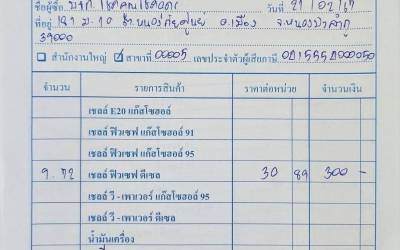 ชื่อผู้ซื้อ บจก. โชคคุณโชคอดร วันที่ 21/02/67
ที่อยู่ 181 ม.10 ต.หนองภัยศูนย์ อ.เมือง จ.หนองบัวลำภู
39000
สำนักงานใหญ่ ✓ สาขาที่ 00005 เลขประจำตัวผู้เสียภาษี
จำนวน รายการสินค้า ราคาต่อหน่วย จำนวนเงิน
เชลล์ E20 แก๊สโซฮอล์
เชลล์ ฟิวเซฟ แก๊สโซฮอล์ 91
เชลล์ ฟิวเซฟ แก๊สโซฮอล์ 95
9.72 เชลล์ ฟิวเซฟ ดีเซล 30 89 300 -
เชลล์ วี - เพาเวอร์ แก๊สโซฮอล์ 95
เชลล์ วี - เพาเวอร์ ดีเซล
น้ำมันเครื่อง